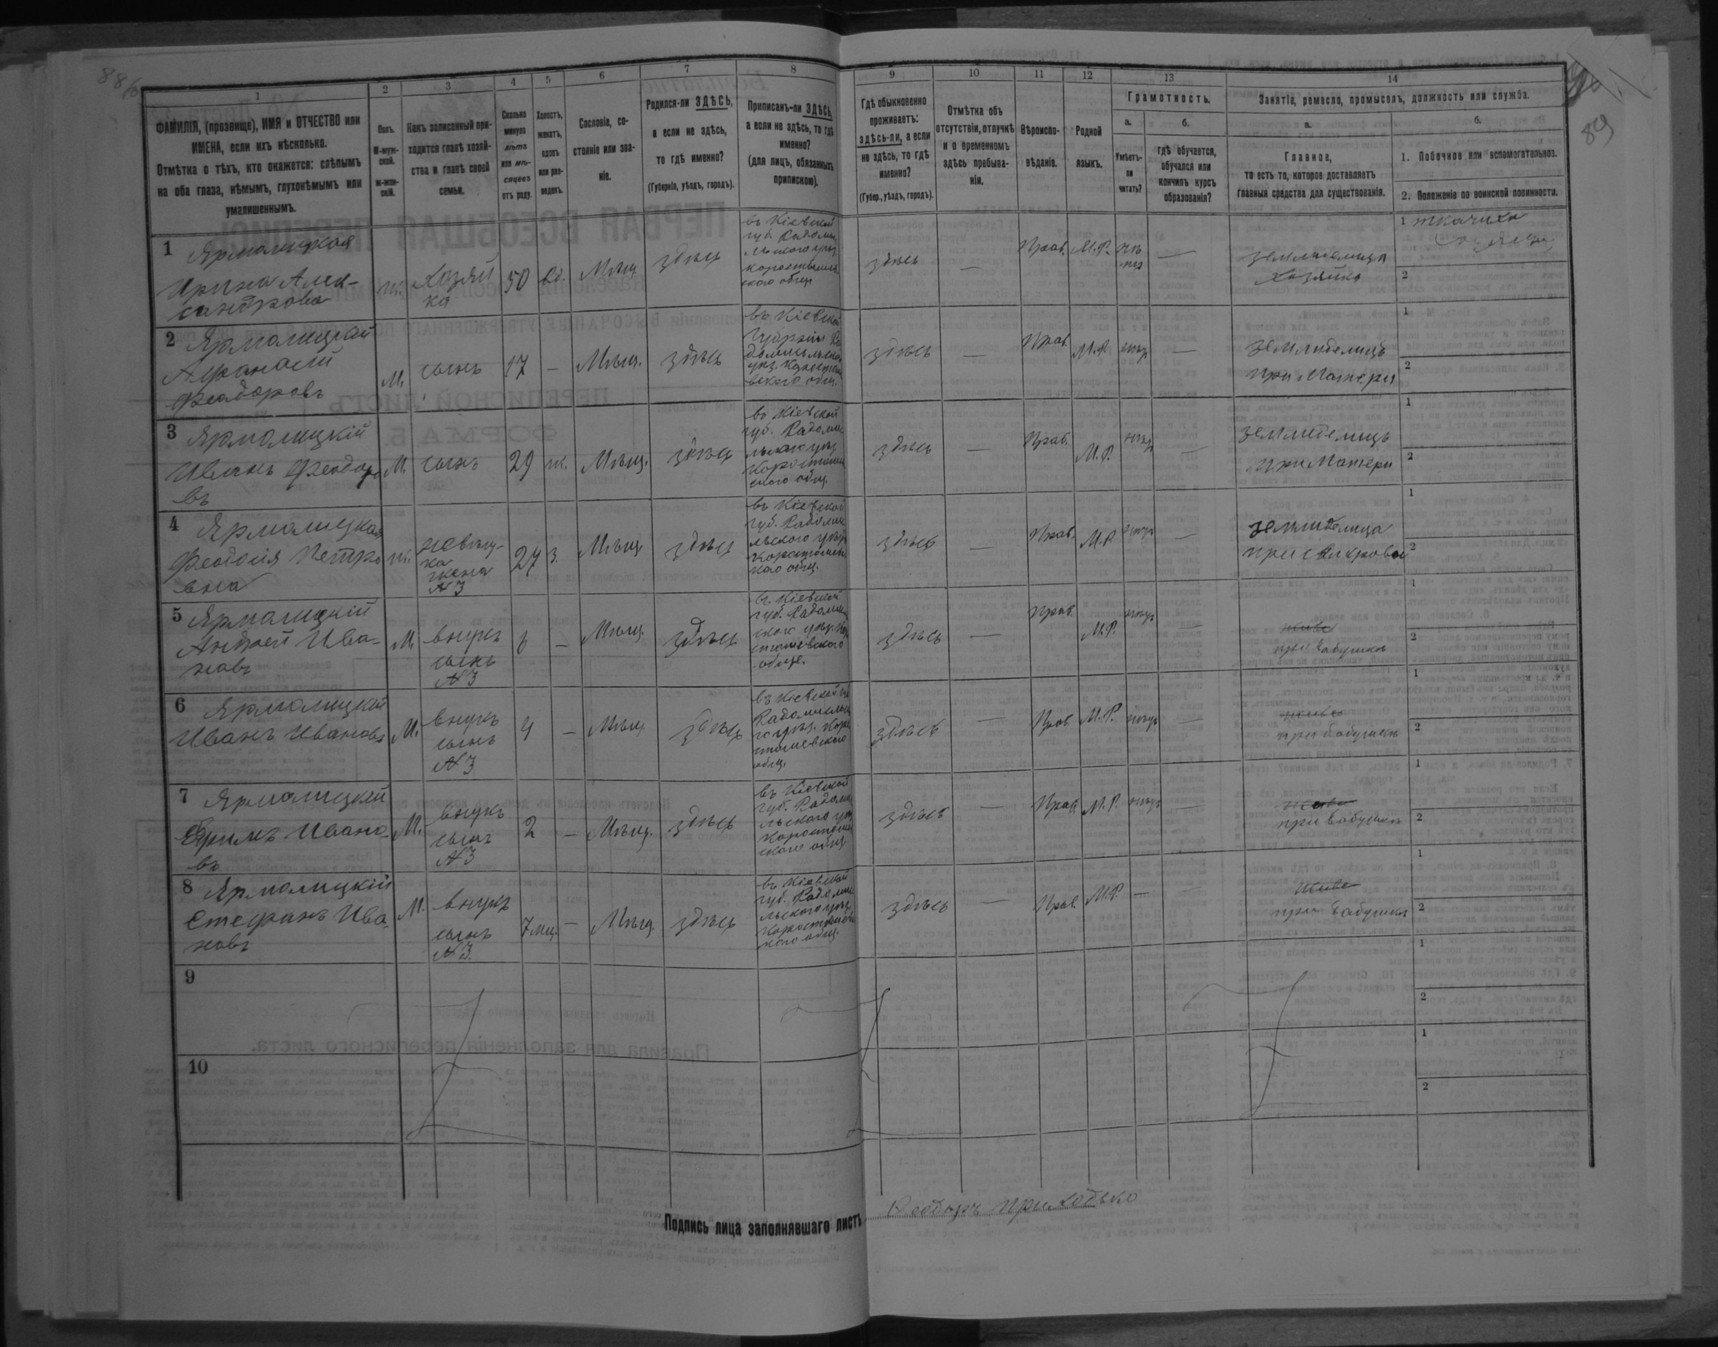 88об
89
1
2
3
4
5
6
7
8
9
10
11
12
13
14
ФАМИЛІЯ, (прозвище), ИМЯ и ОТЧЕСТВО или
ИМЕНА, если ихъ нѣсколько.
Отмѣтка о тѣхъ, кто окажется: слѣпымъ
на оба глаза, нѣмымъ, глухонѣмымъ или
умалишеннымъ.
Полъ.
М-муж-
ской.
Ж-жен-
скій.
Какъ записанный при-
ходится главѣ хозяй-
ства и главѣ своей
семьи.
Сколько
минуло
лѣтъ
или мѣ-
сяцевъ
отъ роду.
Холостъ,
женатъ,
вдовъ
или раз-
веденъ.
Сословіе, со-
стояніе или зва-
ніе.
Родился-ли ЗДѢСЬ,
а если не здѣсь,
то гдѣ именно?
(Губернія, уѣздъ, городъ).
Приписанъ-ли ЗДѢСЬ,
а если не здѣсь, то гдѣ
именно?
(для лицъ, обязанныхъ
припискою).
Гдѣ обыкновенно
проживаетъ:
здѣсь-ли, а если
не здѣсь, то гдѣ
именно?
(Губер., уѣздъ, городъ).
Отмѣтка объ
отсутствіи, отлучкѣ
и о временномъ
здѣсь пребыва-
ніи.
Вѣроиспо-
вѣданіе.
Родной
языкъ.
Грамотность.
а.
Умѣетъ-
ли
читать?
б.
гдѣ обучается,
обучался или
кончилъ курсъ
образованія?
Занятіе, ремесло, промыселъ, должность или служба.
а.
Главное,
то есть то, которое доставляетъ
главныя средства для существованія.
б.
1. Побочное или вспомогательное.
2. Положеніе по воинской повинности.
1
Ярмолицкая
Ирина Алек-
сандрова
ж.
Хозяй
ка
50
вд.
Мѣщ
здѣсь
въ Кіевской
губ. Радомы
льского уѣз
коростышев
ского общ.
здѣсь
—
Прав.
М.Р.
—
земледелица
хозяйка
1 ткачиха
2
2
Ярмолицкій
Афанасій
Феодоровъ
М.
сынъ
17
—
Мѣщ.
здѣсь
въ Кіевской
Губерніи Ра
домысльского
здѣсь
—
Прав
М.Р.
негр
—
земледелецъ
при Матери
1
2
3
Ярмолицкій
Иванъ Феодоро
въ
М.
сынъ
29
ж.
Мѣщ.
здѣсь
въ Кіевской
губ. Радомы
льского уѣз
Коростыш
ского общ
здѣсь
—
Прав.
М.Р.
негр
—
земледелецъ
при Матери
1
2
4
Ярмолицкая
Феодосія Петро
вна
ж.
невѣст-
ка
жена
№3
27
з.
Мѣщ
здѣсь
въ Кіевской
губ. Радомы
льского уѣз
Коростышевс
кого общ.
здѣсь
—
Прав.
М.Р
негр
—
земледелица
при свекрови
1
2
5
Ярмолицкій
Андрей Ива-
новъ
М.
внукъ
сынъ
№3
6
—
Мѣщ.
здѣсь
въ Кіевской
губ. Радомы
здѣсь
—
Прав.
М.Р.
негр
—
при бабушке
1
2
6
Ярмолицкій
Иванъ Ивановъ
М.
внукъ
сынъ
№3
4
—
Мѣщ
здѣсь
здѣсь
—
Прав
М.Р.
негр
—
при бабушке
1
2
7
Ярмолицкій
Ефимъ Ивано-
въ
М.
внукъ
сынъ
№3
2
—
Мѣщ.
здѣсь
въ Кіевской
губ. Радомы
льского уѣз
здѣсь
—
Прав
М.Р.
негр
—
при бабушке
1
2
8
Ярмолицкій
Стефанъ Ива
новъ
М.
внукъ
сынъ
№3.
7 мц
—
Мѣщ.
здѣсь
въ Кіевской
губ. Радомы
льского уѣз
здѣсь
—
Прав
М.Р.
—
—
при бабушке
1
2
9
1
2
10
1
2
Подпись лица заполнявшаго листъ
Феодоръ Приходько